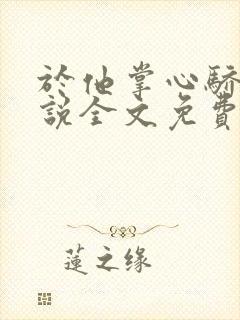 於他掌心驕
説全文免費
蓮之缘